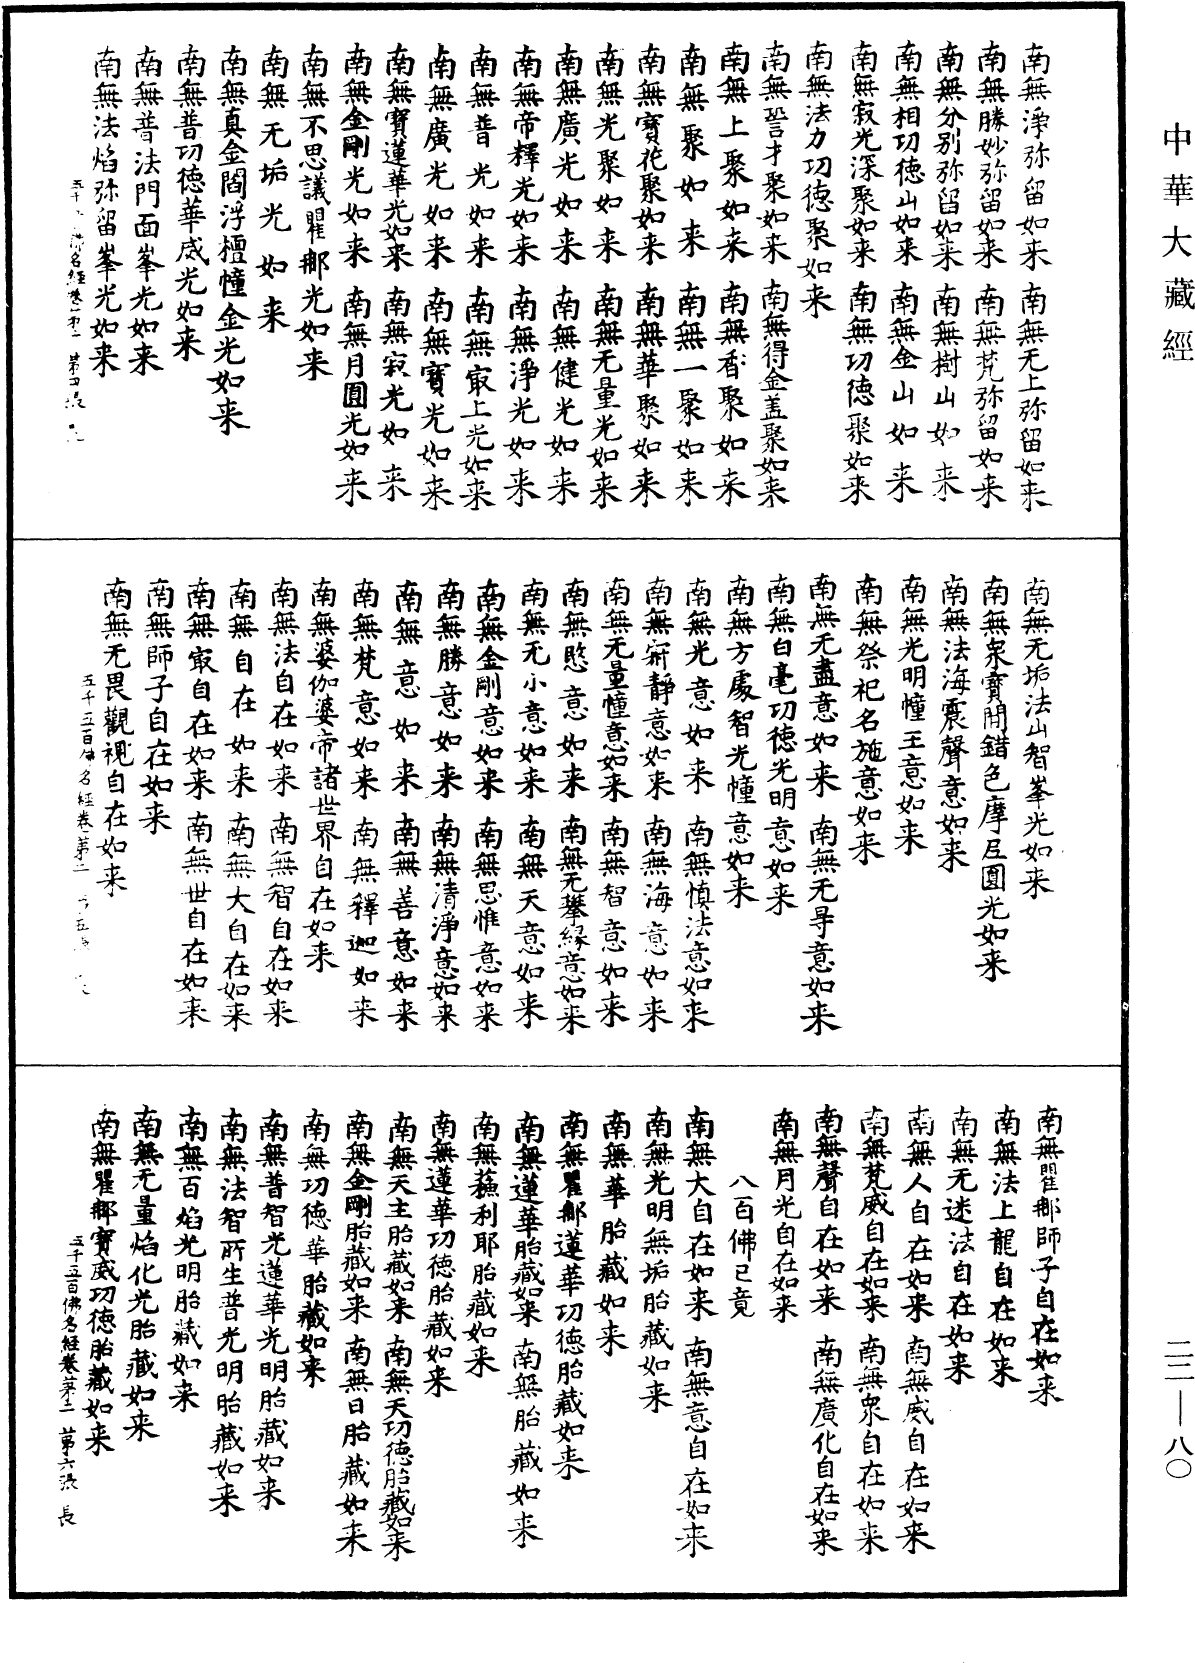 中華大藏經
南無淨弥留如来 南無无上弥留如来
南無勝妙弥留如来 南無梵弥留如来
南無分别弥留如来 南無樹山如来
南無相功徳山如来 南無金山如来
南無寂光深聚如来 南無功徳聚如来
南無法力功徳聚如来
南無誓才聚如来 南無得金盖聚如来
南無上聚如来 南無香聚如来
南無聚如来 南無一聚如来
南無寳花聚如来 南無華聚如来
南無光聚如来 南無无量光如来
南無廣光如来 南無健光如来
南無帝釋光如来 南無淨光如来
南無普光如来 南無㝡上光如来
南無廣光如来 南無寳光如来
南無寳蓮華光如来 南無寂光如来
南無金剛光如来 南無月圓光如来
南無不思議瞿那光如来
南無无垢光如来
南無真金閻浮檀幢金光如来
南無普功徳華威光如来
南無普法門面峯光如来
南無法焰弥留峯光如来
南無无垢法山智峯光如来
南無衆寳間錯色摩尼圓光如来
南無法海震聲意如来
南無光明幢王意如来
南無祭祀名施意如来
南無无盡意如来 南無无㝵意如来
南無白毫功徳光明意如来
南無方處智光幢意如来
南無光意如来 南無慎法意如来
南無寂靜意如来 南無海意如来
南無无量幢意如来 南無智意如来
南無愍意如来 南無无攀緣意如来
南無无小意如来 南無天意如来
南無金剛意如来 南無思惟意如来
南無勝意如来 南無清淨意如来
南無意如来 南無善意如来
南無梵意如来 南無釋迦如来
南無婆伽婆帝諸世界自在如来
南無法自在如来 南無智自在如来
南無自在如来 南無大自在如来
南無㝡自在如来 南無世自在如来
南無師子自在如来
南無无畏觀視自在如来
五千五百佛名經卷第二
南無瞿那師子自在如来
南無法上龍自在如来
南無无迷法自在如来
南無人自在如来 南無威自在如来
南無梵威自在如来 南無衆自在如来
南無聲自在如来 南無廣化自在如来
南無月光自在如来
八百佛已竟
南無大自在如来 南無意自在如来
南無光明無垢胎藏如来
南無華胎藏如来
南無瞿那蓮華功徳胎藏如来
南無蓮華胎藏如来 南無胎藏如来
南無蘓利耶胎藏如来
南無蓮華功徳胎藏如来
南無天主胎藏如来 南無天功徳胎藏如来
南無金剛胎藏如来 南無日胎藏如来
南無功徳華胎藏如来
南無普智光蓮華光明胎藏如来
南無法智所生普光明胎藏如来
南無百焰光明胎藏如来
南無无量焰化光胎藏如来
南無瞿那寳威功徳胎藏如来
五千五百佛名經卷第二 第六張 長
二二—八〇